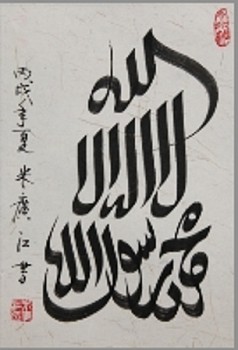 لا اله الا الله
محمد رسول الله
丙戌年夏 米廣江書